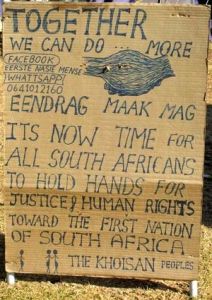 TOGETHER
WE CAN DO ... MORE
FACEBOOK
EERSTE NASIE MENSE
WHATTSAPP
0641012160
EENDRAG MAAK MAG
ITS NOW TIME FOR
ALL SOUTH AFRICANS
TO HOLD HANDS FOR
JUSTICE & HUMAN RIGHTS
TOWARD THE FIRST NATION
OF SOUTH AFRICA
THE KHOISAN PEOPLES